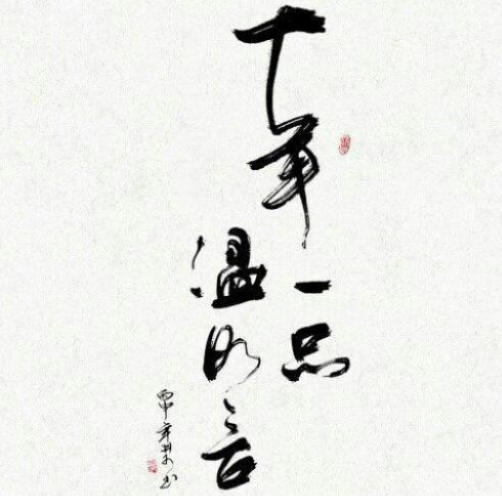 十年
一品
温如言